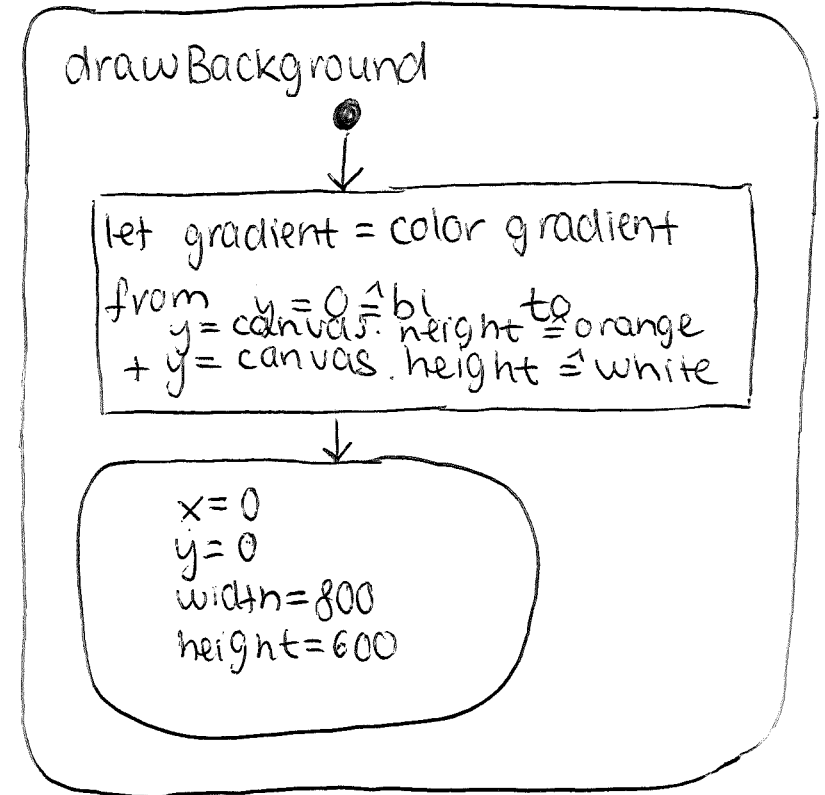 drawBackground
let gradient = color gradient
from y = 0 ≙ bl to
y = canvas. height ≙ orange
+ y = canvas. height ≙ white
x = 0
y = 0
width = 800
height = 600